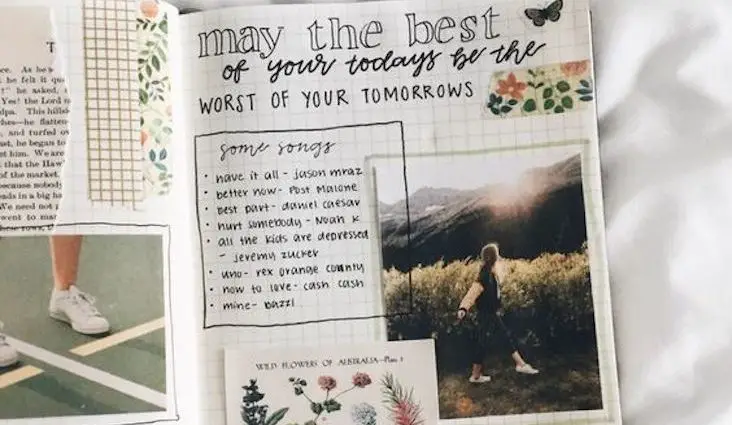 T
ce. As he s
he felt it qu
he asked,
Yes! the Lord
dpa. This hills
s—he flatten
, and turfed
et, he began to
et him. We are
that the Haw
of the market.
because nobody
eads in a big ha
We need not
went to mar
may the best
of your todays be the
WORST OF YOUR TOMORROWS
some songs
• have it all - jason mraz
• better now - Post Malone
• best part - daniel caesar
• hurt somebody - Noah K
• all the kids are depressed
- jeremy zucker
• uno - rex orange county
• how to love - cash cash
• mine - bazzi
WILD FLOWERS OF AUSTRALIA—Plate 1